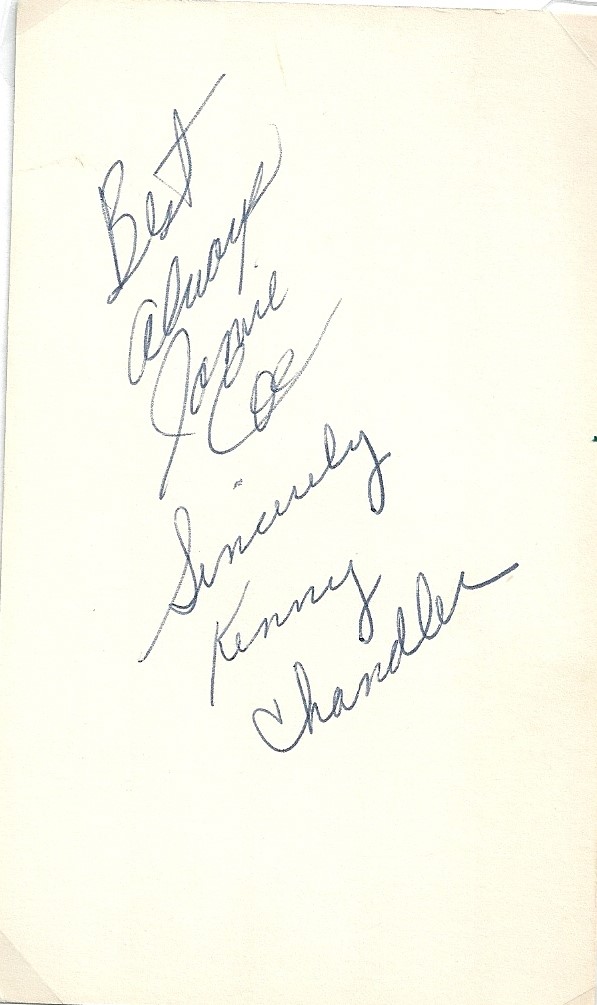 Best
always
Jamie
Coe
Sincerely
Kenny
Chandler